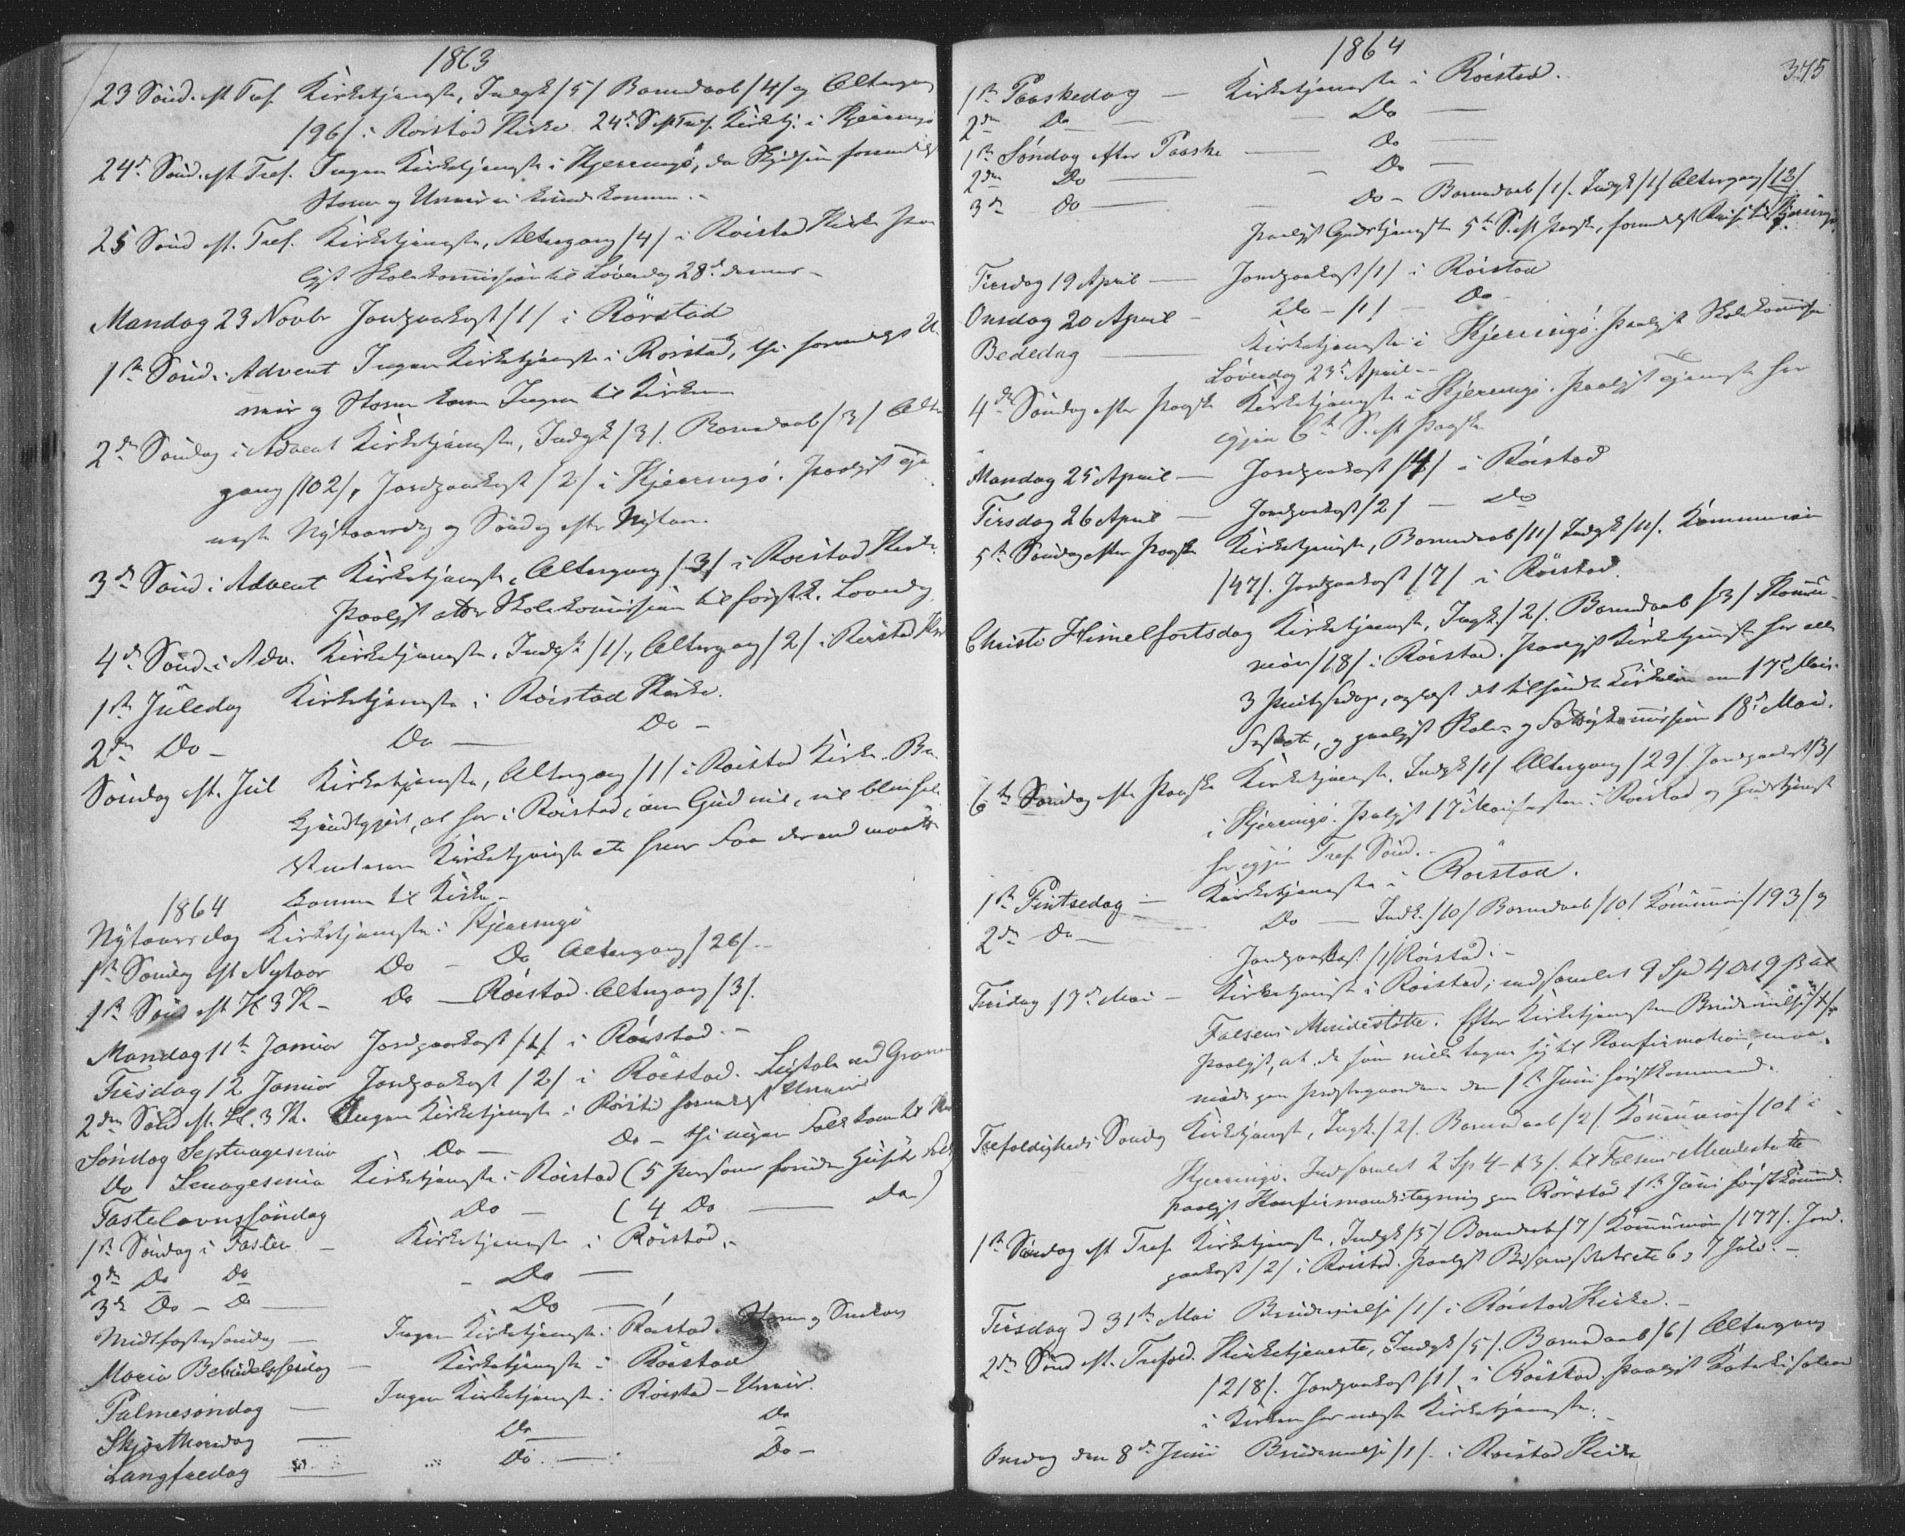 1863
23 Sønd. eft Tref. Kirketjeneste, Indgk /5/ Barnedaab /4/ og Altergang
/96/ i Rørstad Kirke. 24de S. eft Tref. Kirketj. i Kjerringø
24de Sønd. eft Tref. Ingen Kirketjeneste i Kjerringø, da Skydsen formedelst
Storm og Uveir ei kunde komme.
25 Sønd eft. Tref. Kirketjeneste, Altergang /4/ i Rørstad Kirke paa
lyst Skolekommission til Løverdag 28de dennes
Mandag 23 Novbr Jordpaakast /1/ i Rørstad
1ste Sønd. i Advent Ingen Kirketjeneste i Rørstad, thi formedelst U
veir og Storm kom Ingen til Kirken
2den Søndag i Advent Kirketjeneste, Indgk /3/. Barnedaab /3/ Alter
gang /102/, Jordpaakast /2/ i Kjerringø. Paalyst Tje
neste Nytaarsdag og Søndag efter Nytaar.
3de Sønd i Advent Kirketjeneste, Altergang /3/ i Rørstad Kirke.
Paalyst Skolekommission til førstk. Løverdag
4de Sønd. i Adv. Kirketjeneste, Indgk /1/, Altergang /2/ i Rørstad Kirke
1ste Juledag Kirketjeneste i Rørstad Kirke.
2den Do Do Do
Søndag eft. Jul Kirketjeneste, Altergang /1/ i Rørstad Kirke. Be
kjendtgjort, at her i Rørstad, om Gud vil, vil blive
Vinteren Kirketjeneste faa der end maatte
komme til Kirke
1864
Nytaarsdag Kirketjeneste i Kjerringø
1ste Søndag eft Nytaar Do Do Altergang /26/.
1ste Sønd eft H 3 K Do Rørstad. Altergang /3/.
Mandag 11te Januar Jordpaakast /1/ i Rørstad.
Tirsdag 12 Januar Jordpaakast /2/ i Rørstad.
2den Sønd eft. H. 3 K. Ingen Kirketjeneste i Rørstad formedelst Uveir
Søndag Septuagesima Do Do thi ingen Folk kom til Kirke
Do Sexagesima Kirketjeneste i Rørstad (5 personer foruden Husets Folk
Fastelavnssøndag Do (4 Do Do)
1ste Søndag i Fasten Kirketjeneste i Rørstad.
2den Do Do Do
3de Do Do Do
Midtfastesøndag Ingen Kirketjeneste i Rørstad. Storm og Snekov
Maria Bebudelsesdag Kirketjeneste i Rørstad
Palmesøndag Ingen Kirketjeneste i Rørstad - Uveir.
Skjærthorsdag Do Do
Langfredag Do Do
1864
375
1ste Paaskedag Kirketjeneste i Rørstad.
2den Do Do
1ste Søndag efter Paaske Do
2den Do Do
3de Do Do Barnedaab /1/. Indgk /1/ Altergang /12/
Paalyst Gudstjeneste 5te S. eft Paaske, formedelst Reise til Kjerringø.
Tirsdag 19 April Jordpaakast /1/ i Rørstad
Onsdag 20 April Do /1/ Do
Bededag Kirketjeneste i Kjerringø. Paalyst Skolekommission
Løverdag 23de April
4de Søndag efter Paaske Kirketjeneste i Kjerringø. Paalyst Tjeneste her
igjen 6te S. eft Paaske
Mandag 25 April Jordpaakast /4/ i Rørstad
Tirsdag 26 April Jordpaakast /2/ Do
5te Søndag efter Paaske Kirketjeneste, Barnedaab /11/ Indgk /11/. Kommunion
/47/. Jordpaakast /7/ i Rørstad.
Christi Himelfartsdag Kirketjeneste, Ingk. /2/. Barnedaab /3/ Kommu-
nion /18/ i Rørstad. Paalyst Kirketjeneste her alle
3 Pintsedage, oplæst det tilsendte Cirkulær om 17de Mais
Festen, og paalyst Skole- og Fattigkommission 18de Mai.
6te Søndag eft Paaske Kirketjeneste, Indgk /1/ Altergang /29/ Jordpaakast /3/
i Kjerringø. Paalyst 17 Maifesten i Rørstad og Gudstjeneste
her igjen Tref. Sønd.
1ste Pintsedag Kirketjeneste i Rørstad.
2den Do Do Indk. /10/ Barnedaab /10/ Kommunion /193/ og
Jordpaakast /1/ Rørstad.
Tirsdag 17de Mai Kirketjeneste i Rørstad; indsamlet 9 Spd 4 Ort 9 ß til
Falsens Mindestøtte. Efter Kirketjenesten Brudevielse /1/.
Paalyst, at de som ville tegne sig til Konfirmation, maa
møde paa Præstegaarden den 1ste Juni førstkommende.
Trefoldigheds Søndag Kirketjeneste, Ingk. /2/. Barnedaab /2/. Kommunion /10/ i
Kjerringø. Indsamlet 2 Sp 4 - 13 ß. til Falsens Mindestøtte
paalyst Konfirmandstegning paa Rørstad 1ste Juni førstkommend.
1ste Søndag eft Tref Kirketjeneste, Indgk /5/ Barnedaab /7/ Kommunion /177/. Jord-
paakast /2/ i Rørstad. Paalyst Bispevisitats 6 og 7 Juli.
Tirsdag d 31te Mai Brudevielse /1/ i Rørstad Kirke.
2den Sønd eft. Trefold. Kirketjeneste, Indgk /5/. Barnedaab /6/ Altergang
/218/. Jordpaakast /1/ i Rørstad. Paalyst Katekisation
i Kirken her næste Kirketjeneste.
Onsdag den 8de Juni Brudevielse /1/. i Rørstad Kirke